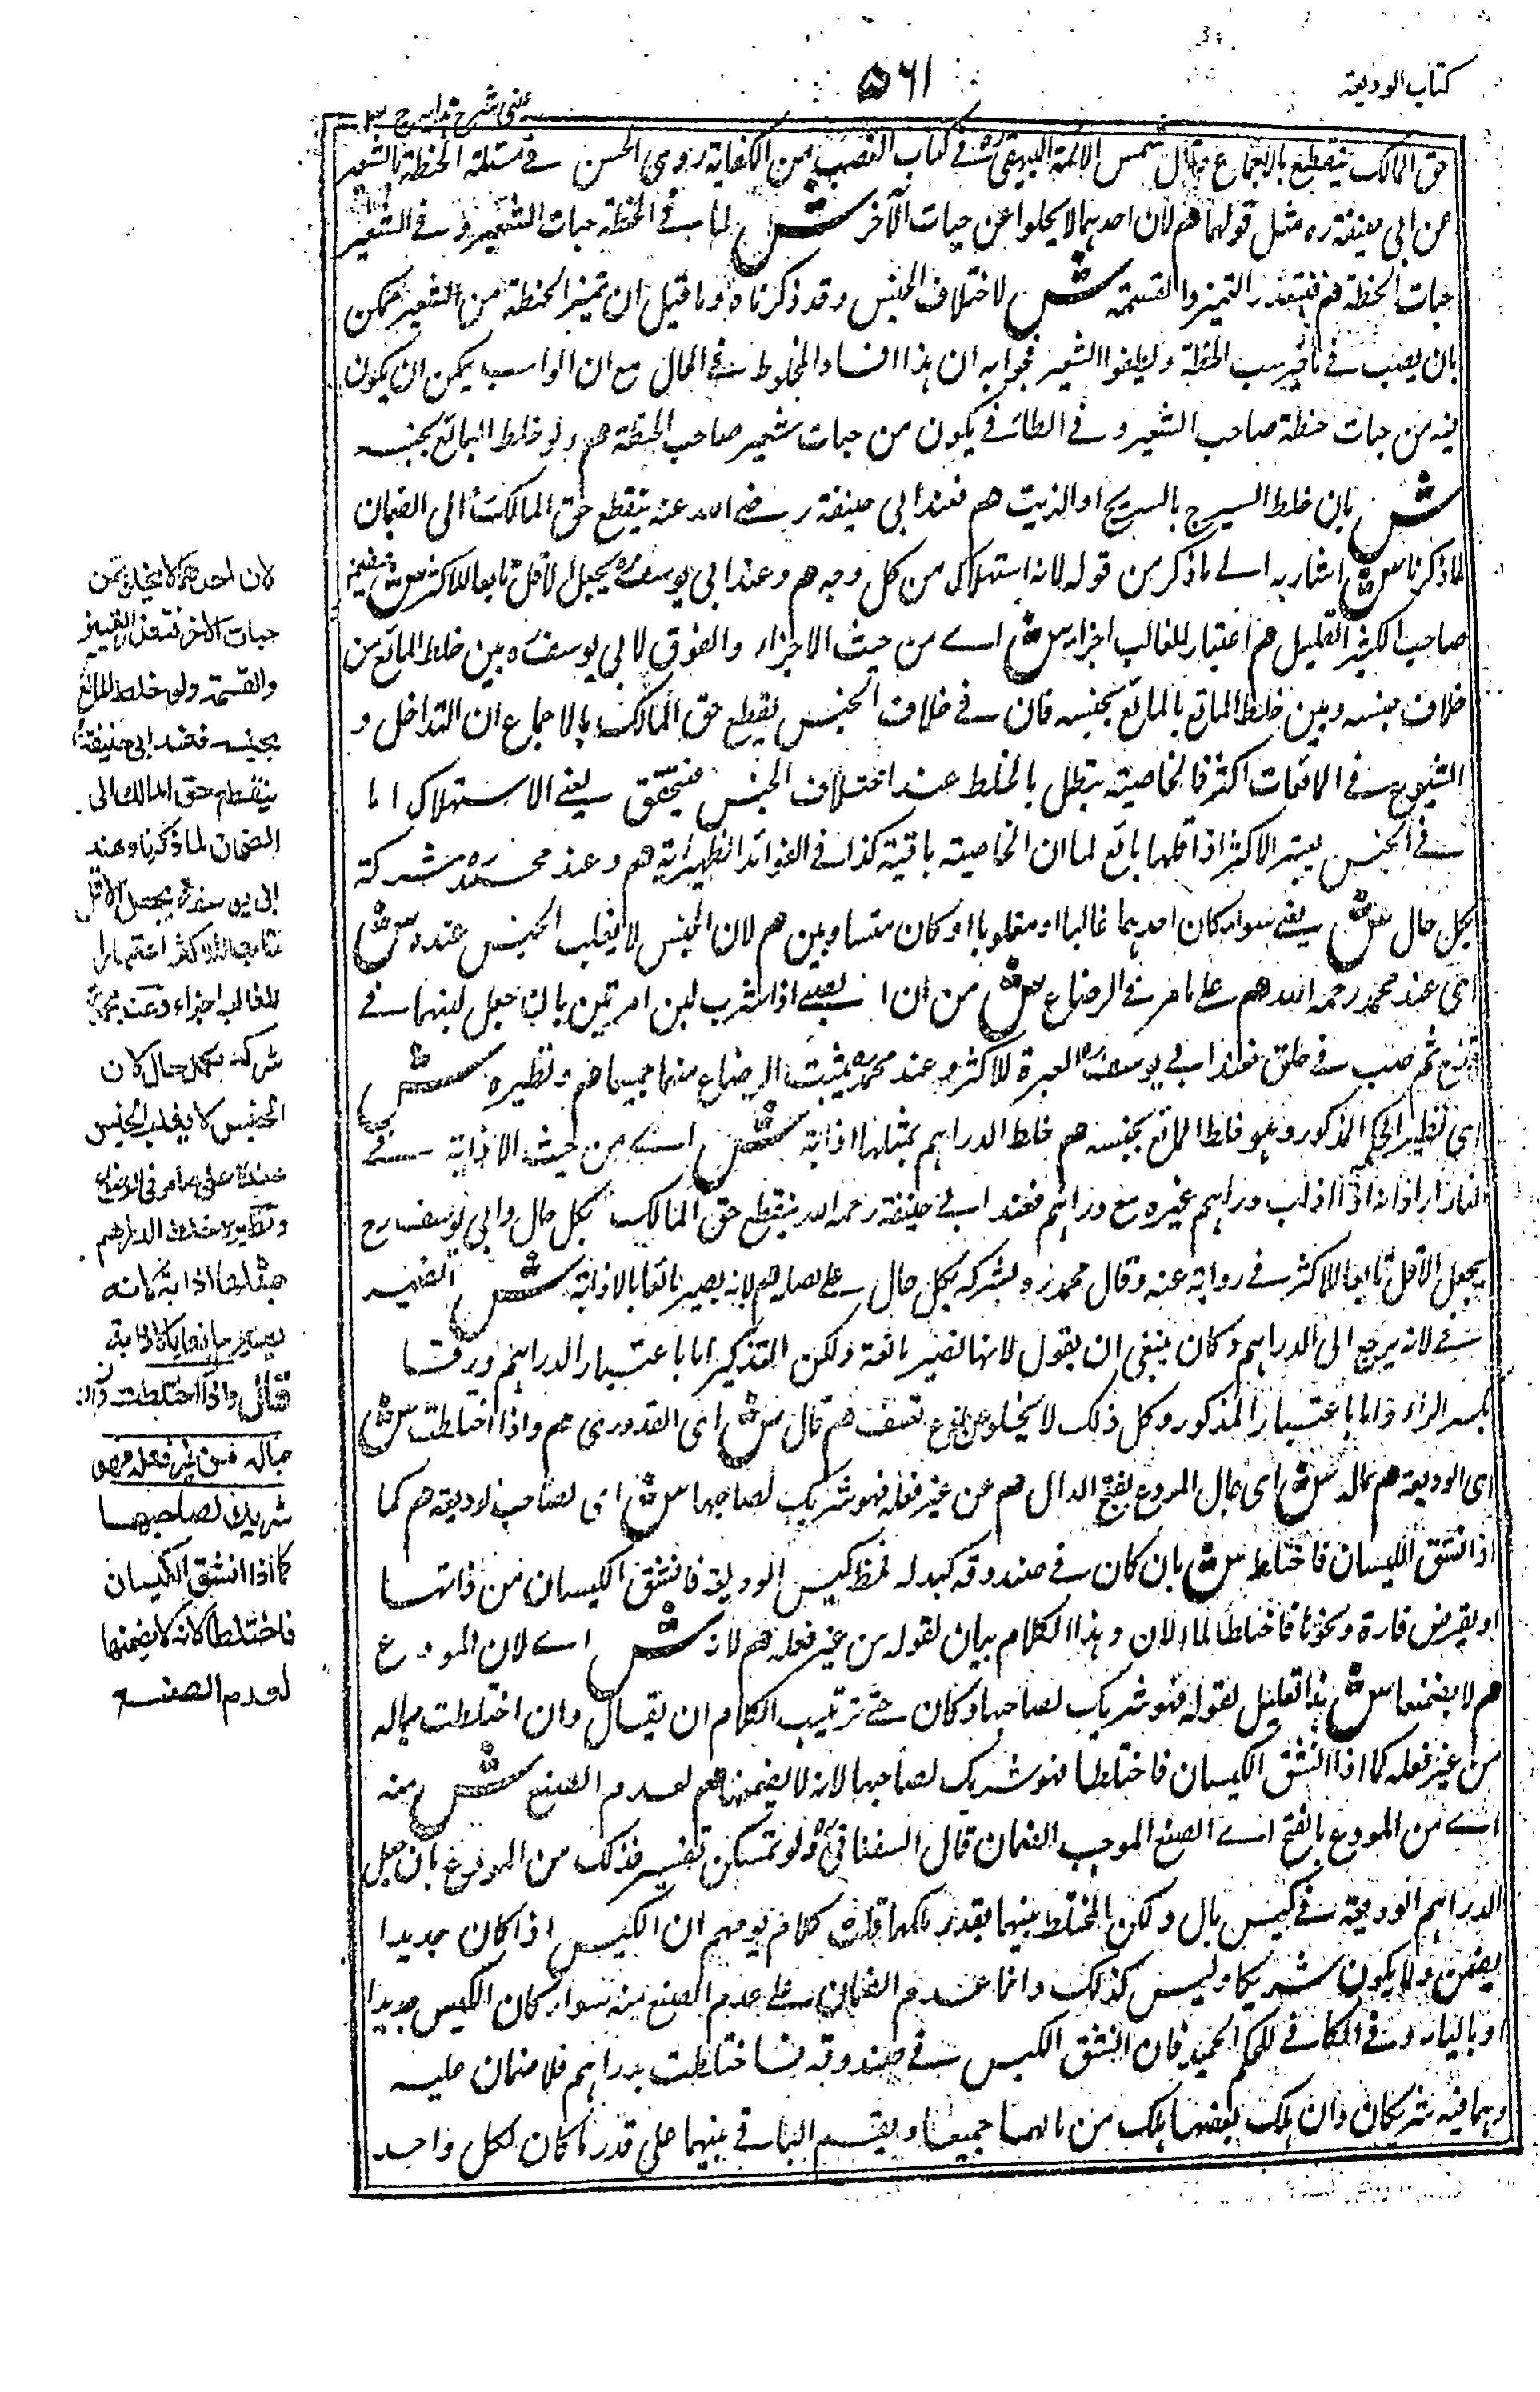 كتاب الوديعة
٥٦١
عينى شرح هداية ج ٣
حق المالك ينقطع بالاجماع وقال شمس الائمة البيهقى رح فى كتاب الغصب من الكفاية روى الحسن فى مسئلة الحنطة بالشعير
عن ابى حنيفة ره مثل قولهما هم لان احدهما لا يخلوا عن حبات الآخر ش لما فى الحنطة حبات الشعير و فى الشعير
حبات الحنطة هم فيتعذر التميز والقسمة ش لاختلاف الجنس وقد ذكرناه وما قيل ان تميز الحنطة من الشعير ممكن
بان يصب فى ماء يرسب الحنطة ويطفوا الشعير فجوابه ان هذا افساد المخلوط فى الحال مع ان الراسب يمكن ان يكون
فيه من حبات حنطة صاحب الشعير و فى الطافى يكون من حبات شعير صاحب الحنطة هم ولو خلط المائع بجنسه
ش بان خلط السيرج بالسيرج او الزيت هم فعند ابى حنيفة رضى الله عنه ينقطع حق المالك الى الضمان
لما ذكرنا ش اشار به الى ما ذكر من قوله لانه استهلاك من كل وجه هم وعند ابى يوسف ره يجعل الاقل تابعا للاكثر ش فيضمن
صاحب الكثير القليل هم اعتبارا للغالب اجزاء ش اى من حيث الاجزاء والفرق لابى يوسف ره بين خلط المائع من
خلاف جنسه وبين خلط المائع بالمائع بجنسه فان فى خلاف الجنس يقطع حق المالك بالاجماع ان التداخل و
الشيوع فى المائعات اكثر فالخاصية يبطل بالخلط عند اختلاف الجنس فيتحقق يعنى الاستهلاك اما
فى الجنس يعتبر الاكثر اذ اقلها بائع لما ان الخاصية باقية كذا فى الفوائد الظهيرية هم وعند محمد ره شركه
بكل حال ش يعنى سواء كان احدهما غالبا او مغلوبا او كان متساويين هم لان الجنس لا يغلب الجنس عنده ش
اى عند محمد رحمه الله هم على ما مر فى الرضاع ش من ان يعنى اذا شرب لبن امرأتين بان جعل لبنهما فى
قدح ثم صب فى حلق فعند ابى يوسف ره العبرة للاكثر وعند محمد ره يثبت الرضاع منهما جميعا هم ونظيره ش
اى نظير الحكم المذكور وهو خلط المائع بجنسه هم خلط الدراهم بمثلها اذابة ش اى من حيث الاذابة فى
النار اراد انه اذا اذاب دراهم غيره مع دراهم فعند ابى حنيفة رحمه الله ينقطع حق المالك بكل حال وابى يوسف رح
يجعل الاقل تابعا للاكثر فى رواية عنه وقال محمد ره يشركه بكل حال على اصله هم لانه يصير مائعا بالاذابة ش الضمير
فى لانه يرجع الى الدراهم وكان ينبغى ان يقول لانها تصير مائعة ولكن التذكير اما باعتبار الدراهم ورقا
بكسر الراء واما باعتبار المذكور وكل ذلك لا يخلو عن نوع تعسف هم قال ش اى القدورى هم واذا اختلطت ش
اى الوديعة هم بماله ش اى بمال المودع بفتح الدال هم من غير فعله فهو شريك لصاحبها ش اى لصاحب الوديعة هم كما
اذا انشق الكيسان فاختلط ش بان كان فى صندوقه كيد له فحط كيس الوديعة فانشق الكيسان من ذاتهما
او بقرض فارة ونحوها فاختلط المالان وهذا الكلام بيان لقوله من غير فعله هم لانه ش اى لان المودع
هم لا يضمنها ش هذا تعليل لقوله فهو شريك لصاحبها وكان حق ترتيب الكلام ان يقال وان اختلطت بماله
من غير فعله كما اذا انشق الكيسان فاختلطا فهو شريك لصاحبها لانه لا يضمنها هم لعدم الصنع ش منه
اى من المودع بالفتح اى الصنع الموجب الضمان قال السغناقى ره ولو تمكن تقصير فذلك من المودع بان جعل
الدراهم الوديعة فى كيس بال ولكن المختلط بينهما بقدر ملكهما قلت كلام يوهم ان الكيس اذا كان جديدا
يضمن ولا يكون شريكا وليس كذلك وانما عدم الضمان على عدم الصنع منه سواء كان الكيس جديدا
او باليا و فى الكافى للحاكم الشهيد فان انشق الكيس فى صندوقه فاختلطت بدراهم فلا ضمان عليه
وهما فيه شريكان وان هلك بعضها هلك من مالهما جميعا ويقسم الباقى بينهما على قدر ما كان لكل واحد
لان احدهما لا يخلو عن
حبات الآخر فتعذر التمييز
والقسمة ولو خلط المائع
بجنسه فعند ابى حنيفة رح
ينقطع حق المالك الى
الضمان لما ذكرنا وعند
ابى يوسف رح يجعل الاقل
تابعا للاكثر اعتبارا
للغالب اجزاء وعند محمد رح
شركه بكل حال لان
الجنس لا يغلب الجنس
عنده على ما مر فى الرضاع
ونظيره خلط الدراهم
بمثلها اذابة لانه
يصير مائعا بالاذابة
قال واذا اختلطت
بماله من غير فعله فهو
شريك لصاحبها
كما اذا انشق الكيسان
فاختلطا لانه لا يضمنها
لعدم الصنع